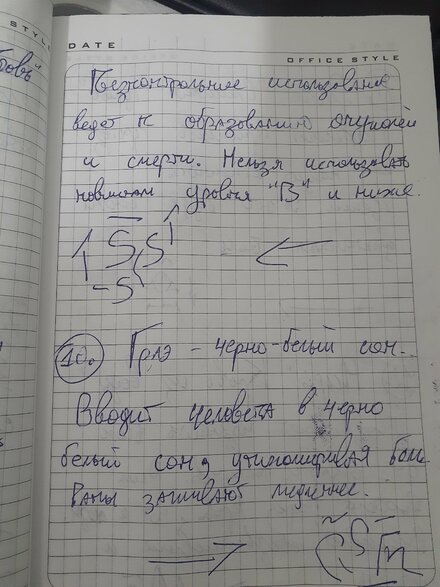 STYLE
DATE
OFFICE STYLE
Безконтрольное использование
ведет к образованию опухолей
и смерти. Нельзя использовать
новичкам уровня "B" и ниже.
10. Грлэ - черно-белый сон.
Вводит человека в черно
белый сон, утихомиривая боль
Раны заживают медленнее.